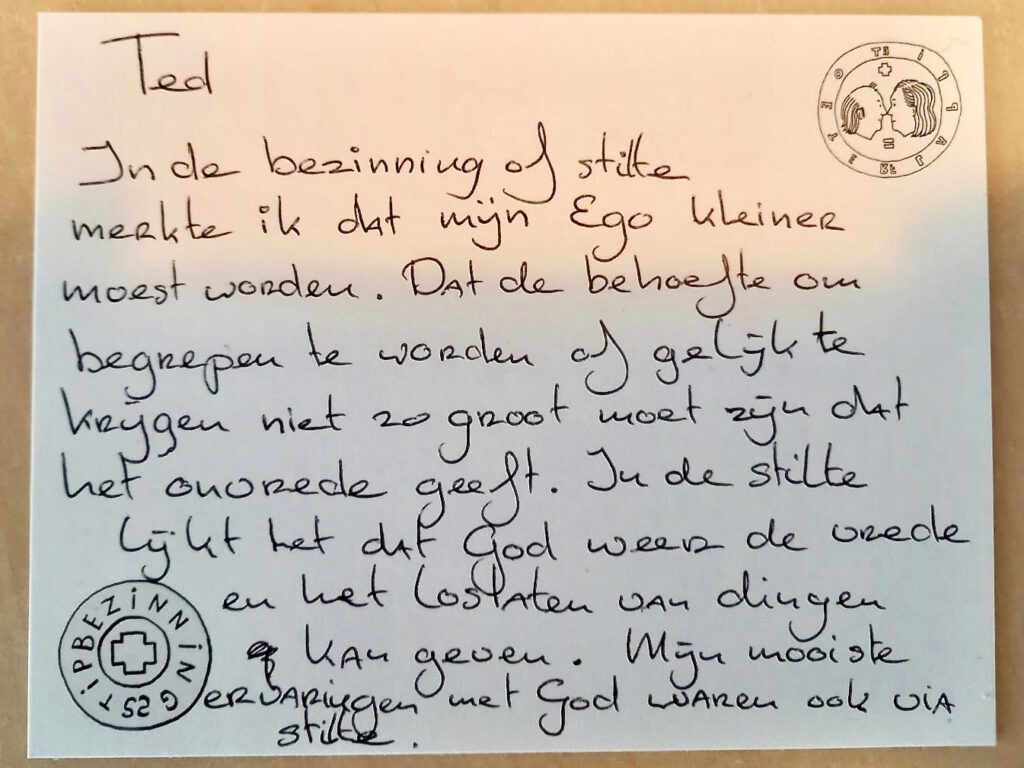 Ted
In de bezinning of stilte
merkte ik dat mijn Ego kleiner
moest worden. Dat de behoefte om
begrepen te worden of gelijk te
krijgen niet zo groot moet zijn dat
het onvrede geeft. In de stilte
lijkt het dat God weer de vrede
en het loslaten van dingen
kan geven. Mijn mooiste
ervaringen met God waren ook via
stilte.